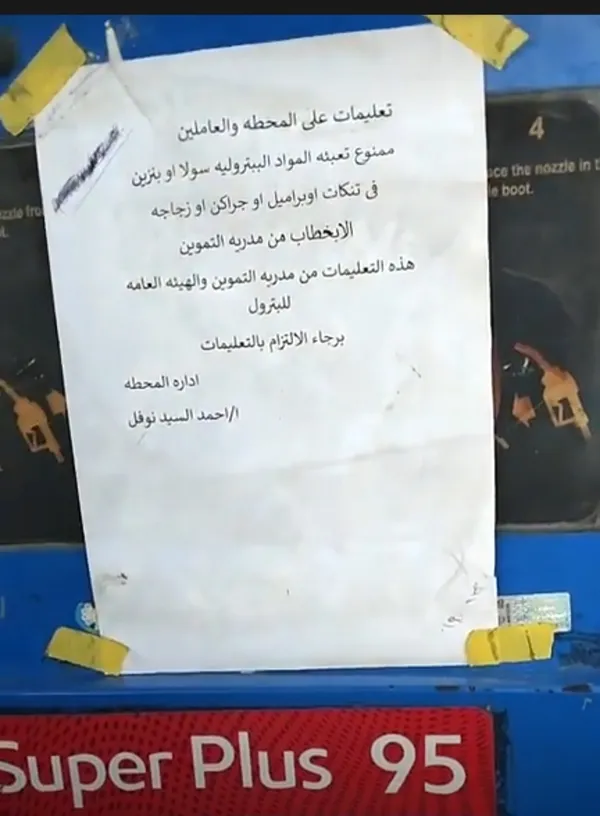 تعليمات على المحطه والعاملين
ممنوع تعبئه المواد الببتروليه سولا او بنزين
فى تنكات اوبراميل او جراكن او زجاجه
الابخطاب من مدريه التموين
هذه التعليمات من مدريه التموين والهيئه العامه
للبترول
برجاء الالتزام بالتعليمات
اداره المحطه
ا/احمد السيد نوفل
4
the nozzle in
boot.
Super Plus 95